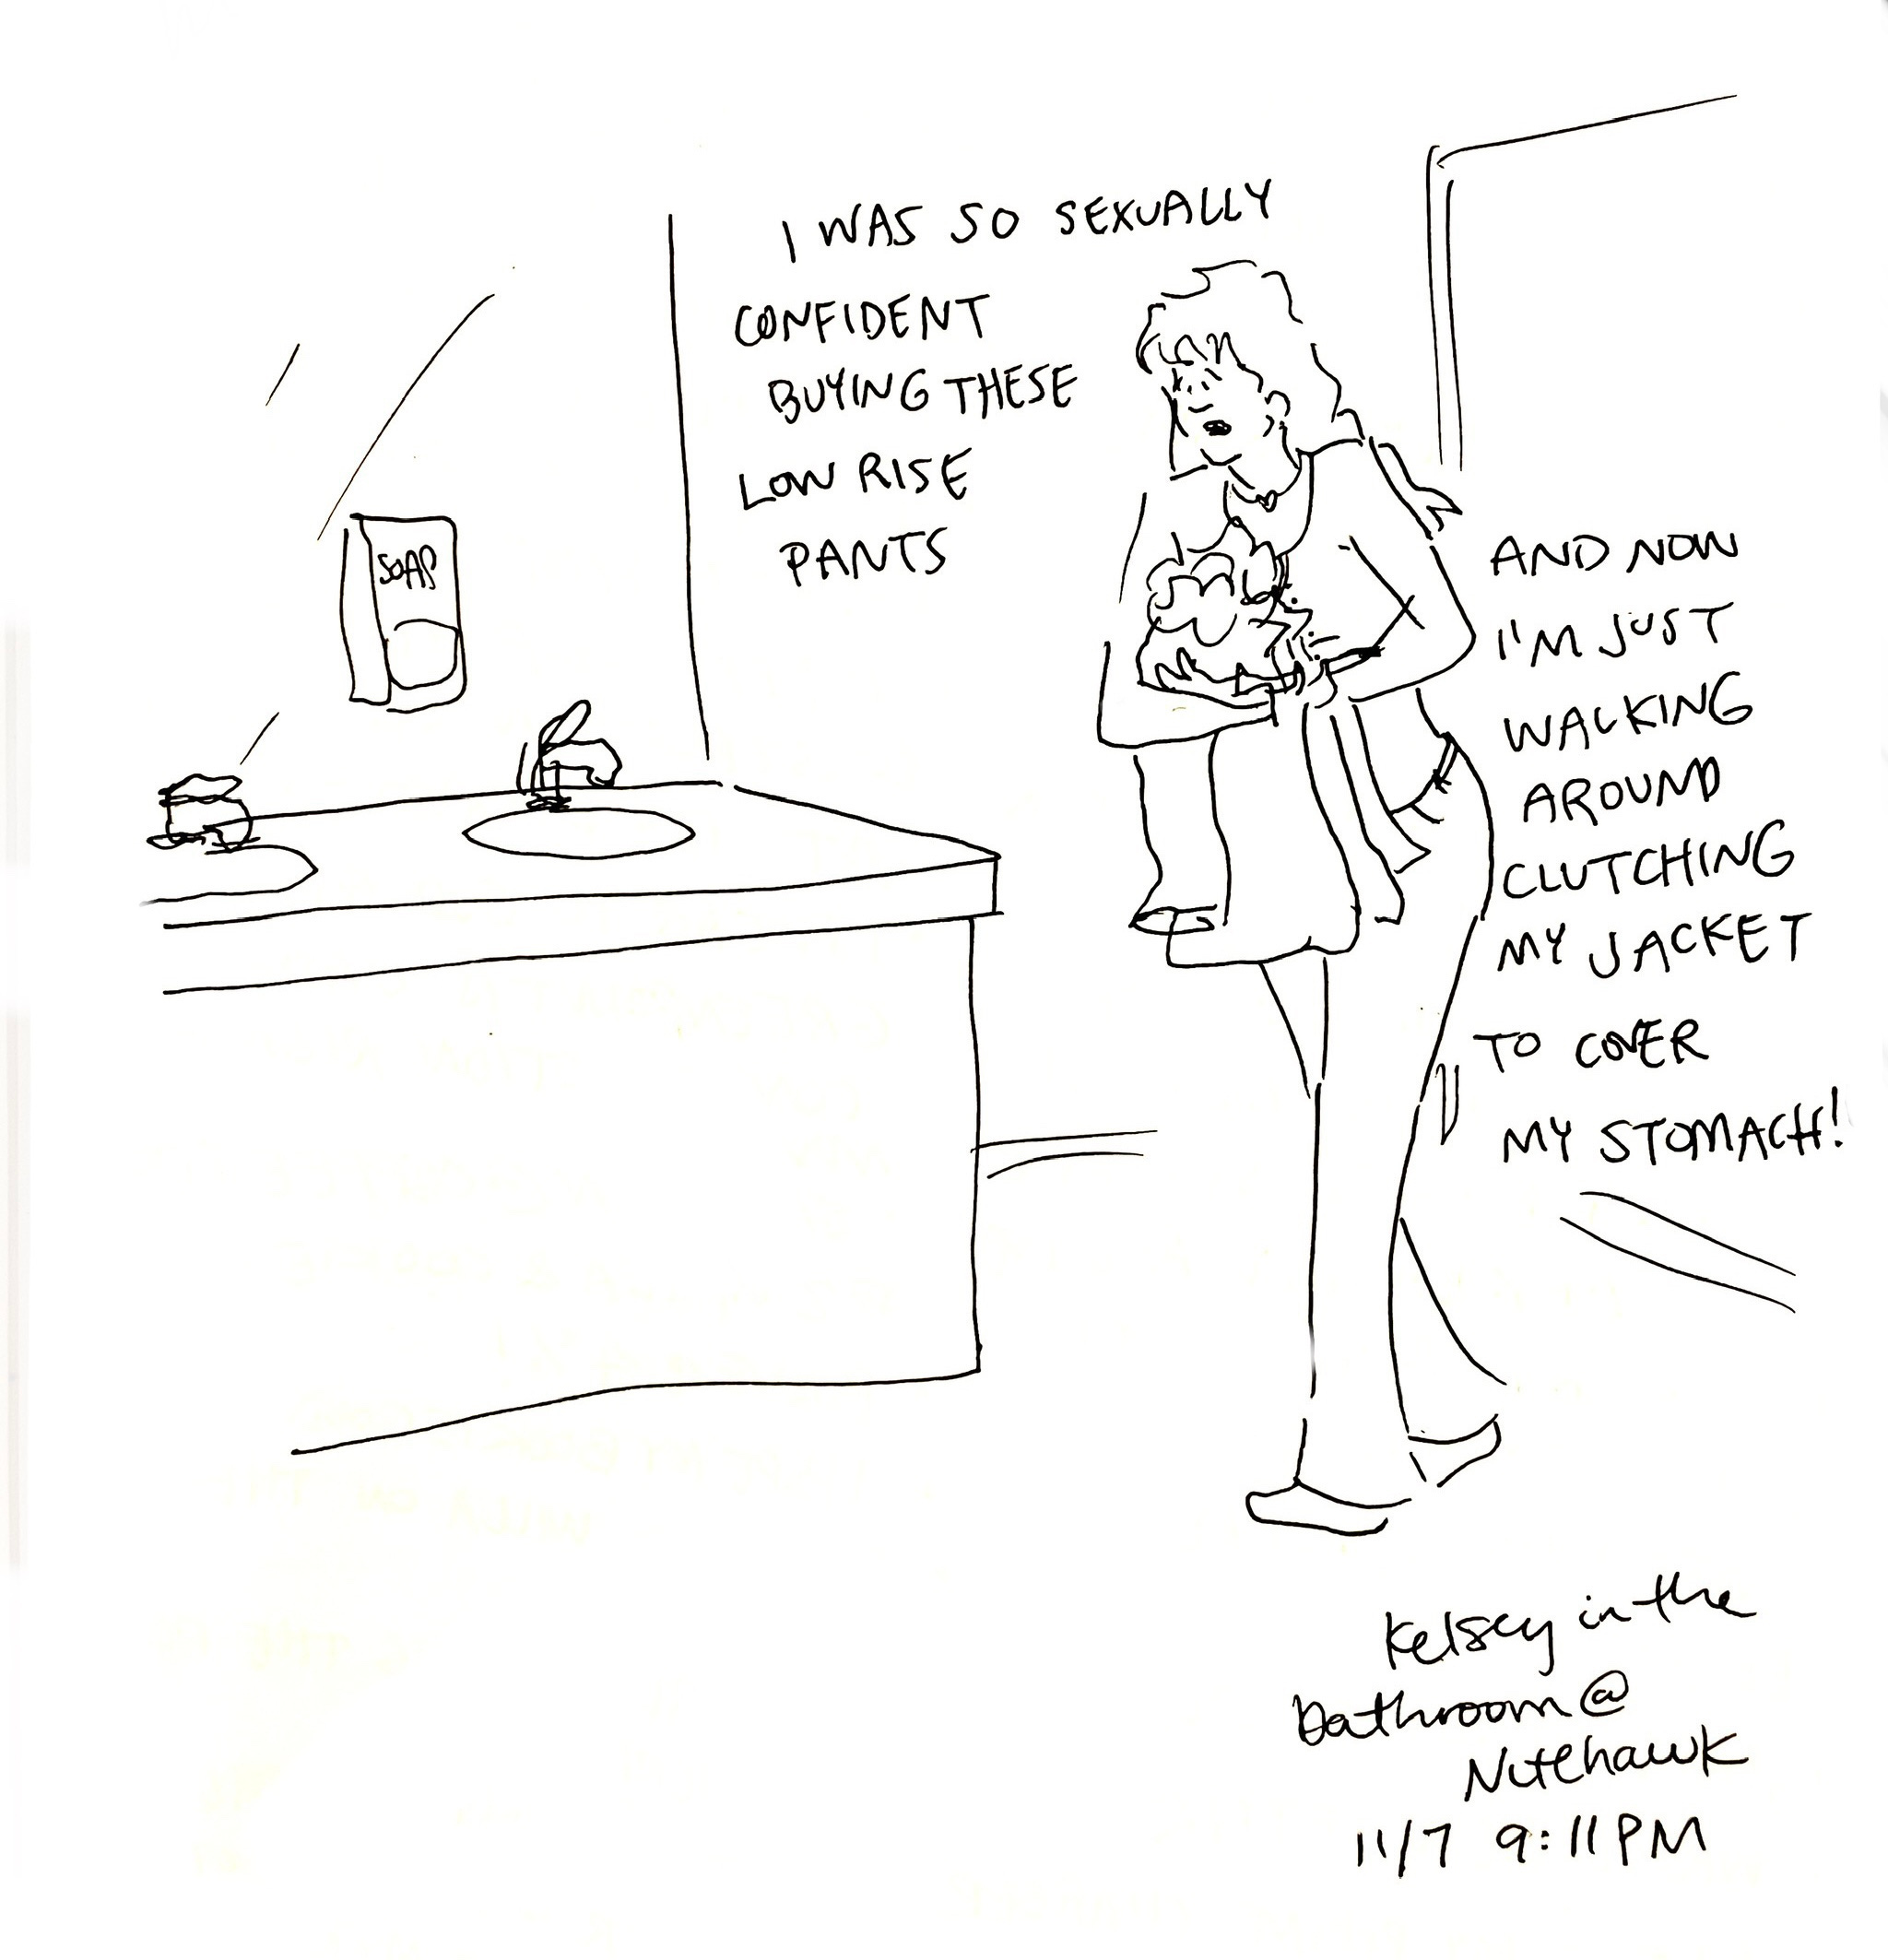 I WAS SO SEXUALLY
CONFIDENT
BUYING THESE
LOW RISE
PANTS
SOAP
AND NOW
I'M JUST
WALKING
AROUND
CLUTCHING
MY JACKET
TO COVER
MY STOMACH!
Kelsey in the
bathroom @
Nitehawk
11/7 9:11PM